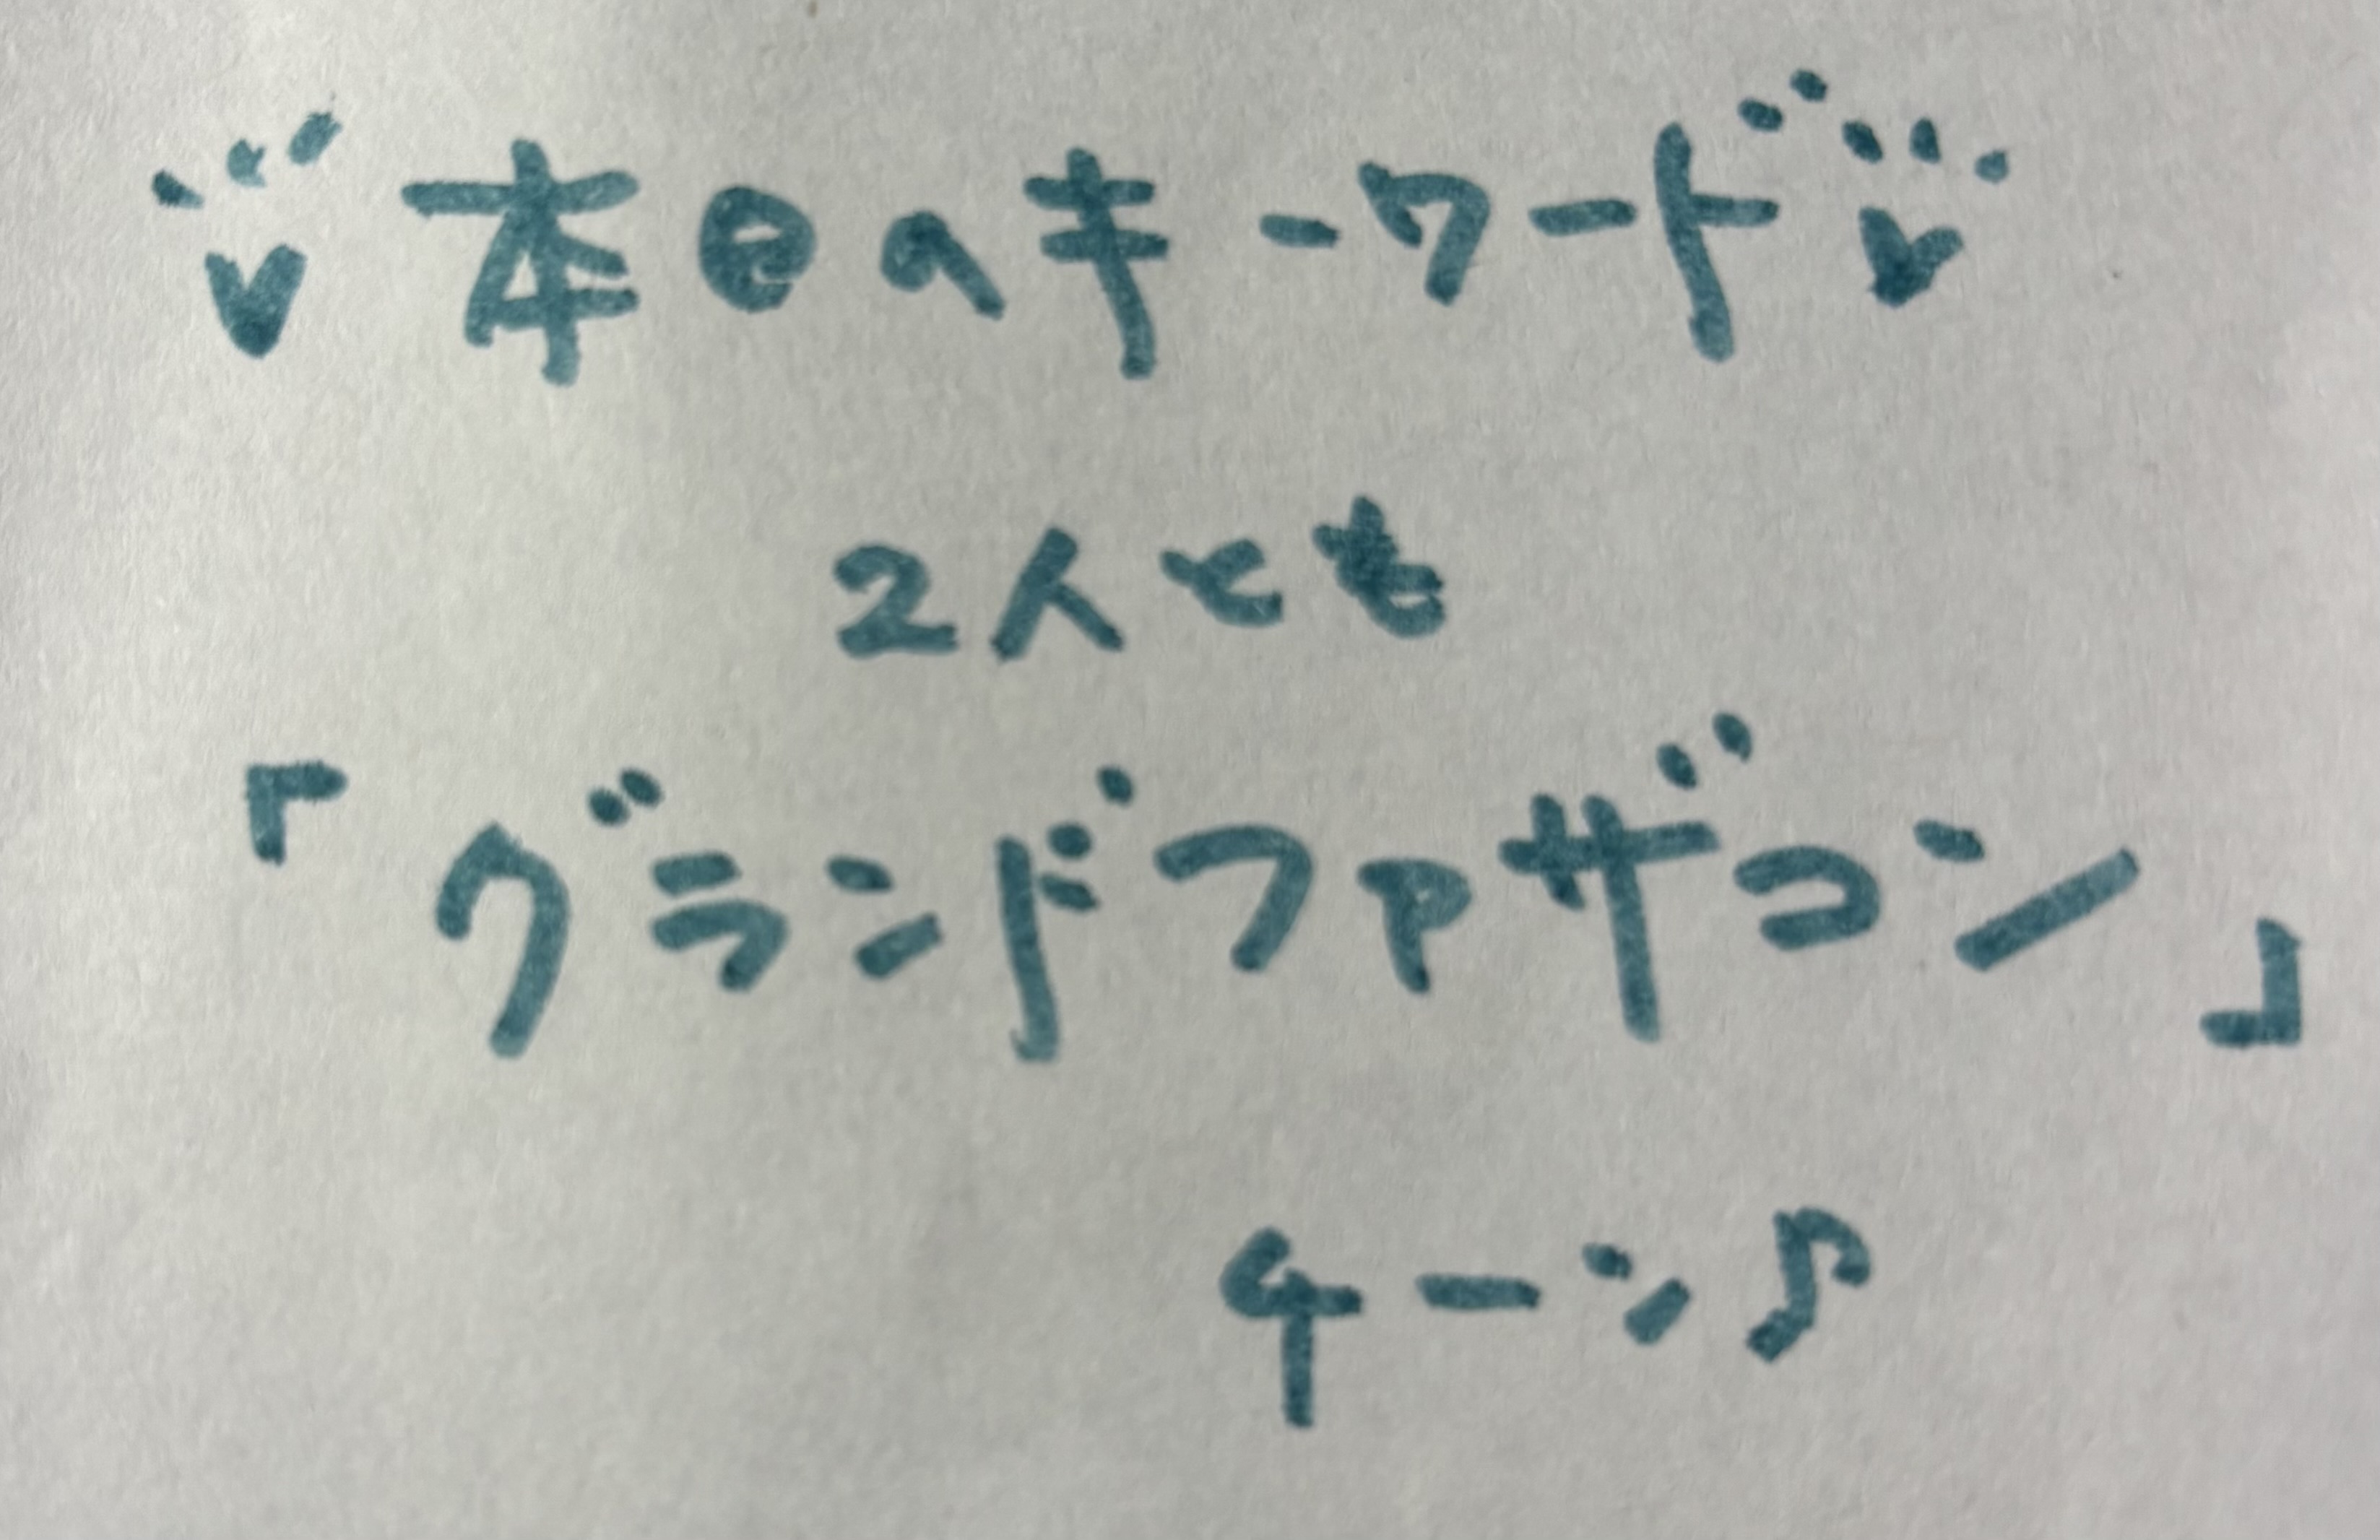 ♥本日のキーワード♥
2人とも
「グランドファザコン」
チーン♪